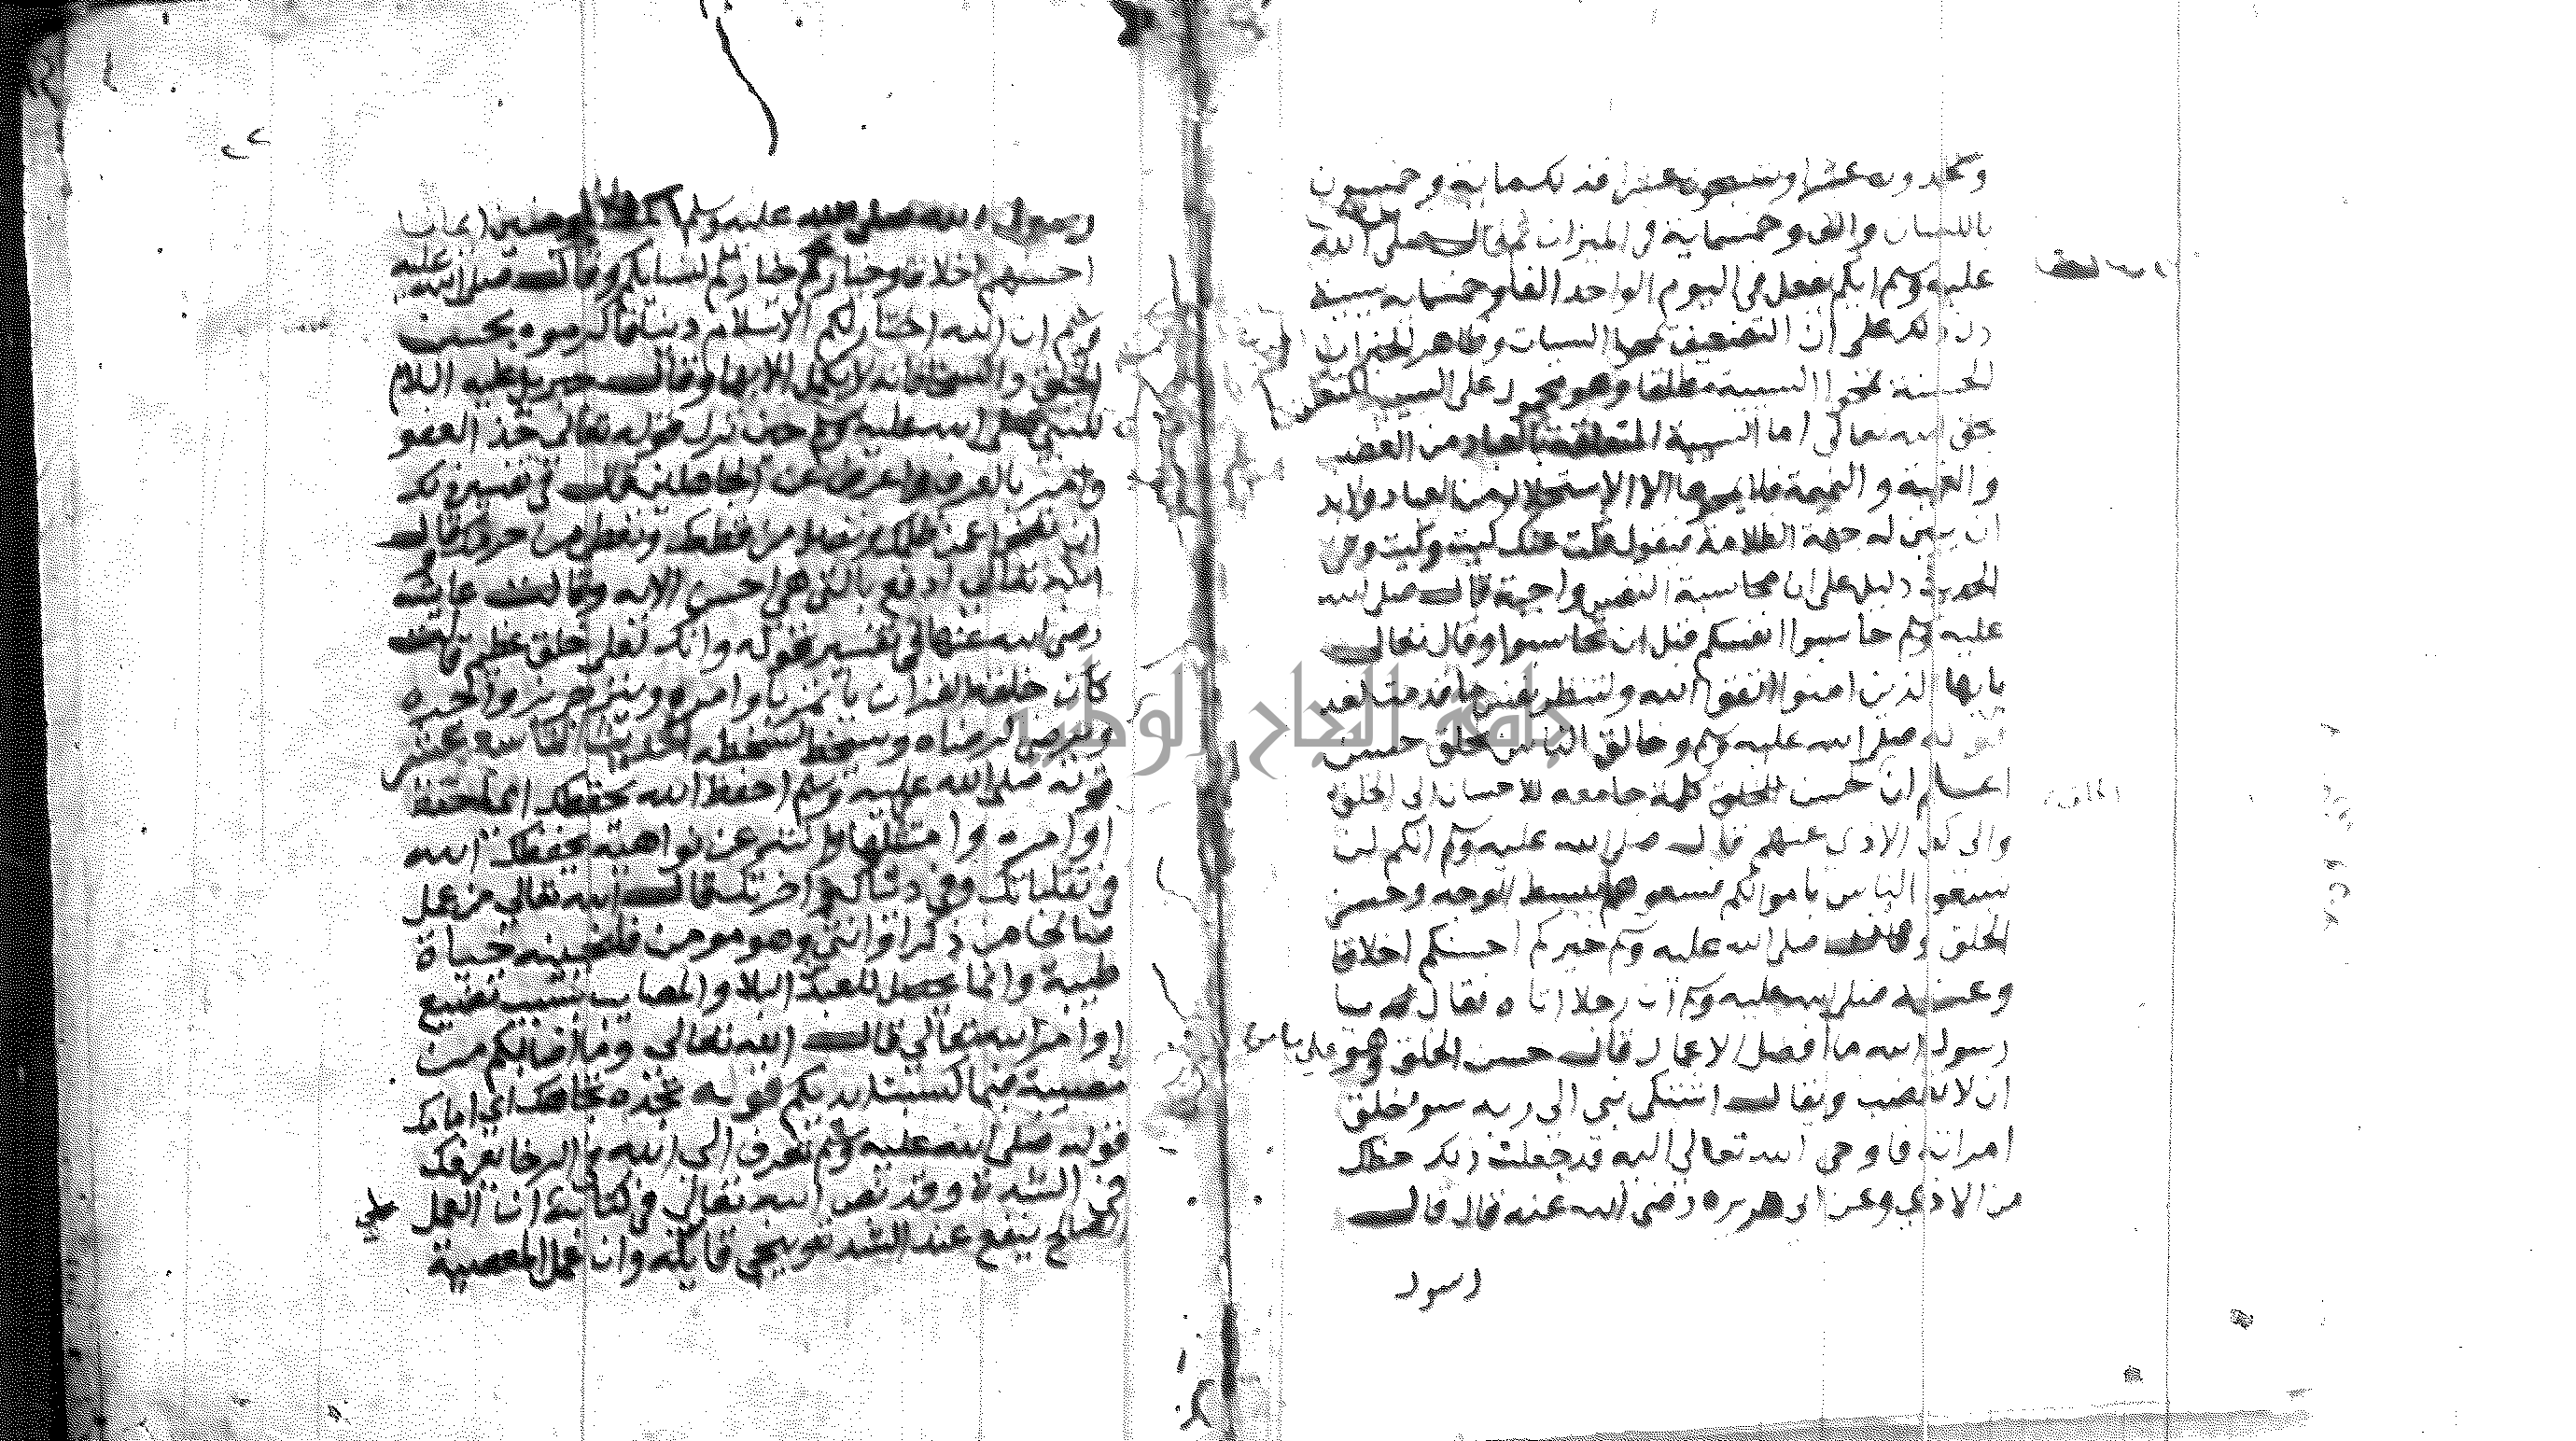 وتحمدونه عشرا وتسبحونه عشرا فذلك مائة وخمسون
باللسان والف وخمسماية في الميزان ثم قال صلى الله
عليه وسلم ايكم يفعل في اليوم الواحد الفا وخمسمايه سيئة
دل ذلك على ان التضعيف يمحوا السيات وظاهر الخبر ان
الحسنة تمحوا السيية مطلقا وهو محمول على السيية المتعلقة
بحق الله تعالى اما السيية المتعلقة بالعباد من الغضب
والغيبة و النميمة فلا يمحوها الا الاستحلال من العباد ولابد
ان يبين له جهة الظلامة فيقول قلت عنك كيت وكيت وفي
الحديث دليل على ان محاسبة النفس واجبة قال صلى الله
عليه وسلم حاسبوا انفسكم قبل ان تحاسبوا وقال تعالى
يايها الذين امنوا اتقوا الله ولتنظر نفس ما قدمت لغد
قوله صلى الله عليه وسلم وخالق الناس بخلق حسن
اعلم ان حسن الخلق كلمة جامعه للاحسان الى الخلق
والى كف الاذى عنهم قال صلى الله عليه وسلم انكم لن
تسعوا الناس باموالكم فسعوهم ببسط الوجه وحسن
الخلق و صلى الله عليه وسلم خيركم احسنكم اخلاقا
وعنه صلى الله عليه وسلم ان رجلا اتاه فقال يا
رسول الله ما افضل الاعمال قال حسن الخلق وهو على ما مر
ان لا تغضب ويقال اشتكى نبي الى ربه سوء خلق
امراته فاوحى الله تعالى اليه قد جعلت ذلك حظك
من الاذى وعن ابي هريره رضى الله عنه قال قال
رسول
رسول الله صلى الله عليه وسلم اكمل المومنين ايمانا
احسنهم اخلاقا وخياركم خياركم لنسايكم وقال صلى الله عليه
وسلم ان الله اختار لكم الاسلام دينا فاكرموه بحسن
الخلق والسخا فانه لا يكمل الا بهما وقال جبريل عليه السلام
للنبي صلى الله عليه وسلم حين نزل قوله تعالى خذ العفو
وامر بالعرف واعرض عن الجاهلين قال في تفسير ذلك
ان تعفوا عمن ظلمك وتصل من قطعك وتعطي من حرمك قال
الله تعالى ادفع بالتي هي احسن الايه وقالت عايشة
رضى الله عنها في تفسير قوله وانك لعلى خلق عظيم قالت
كان خلقه القران ياتمر باوامره وينزجر بزواجره
ويرضى لرضاه ويسخط لسخطه الحديث التاسع عشر
قوله صلى الله عليه وسلم احفظ الله يحفظك اي احفظ
اوامره وامتثلها وانته عن نواهيه يحفظك الله
في تقلباتك وفي دنياك واخرتك قال الله تعالى من عمل
صالحا من ذكر او انثى وهو مومن فلنحيينه حياة
طيبة وانما يحصل للعبد البلا والمصايب بسبب تضييع
اوامر الله تعالى قال الله تعالى وما اصابكم من
مصيبة فبما كسبت ايديكم قوله تجده تجاهك اي امامك
قوله صلى الله عليه وسلم تعرف الى الله في الرخا يعرفك
في الشدة وقد نص الله تعالى في كتابه ان العمل
الصالح ينفع عند الشدة وينجي فاعله وان عمل المعصية